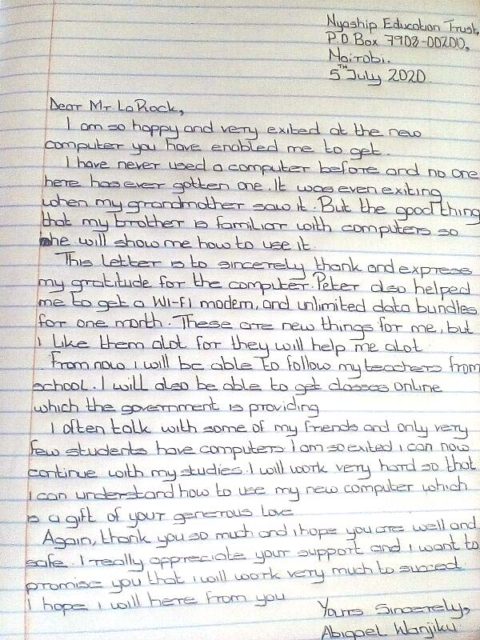 Nyaship Education Trust,
P.O Box 7908-00200,
Nairobi.
5TH July 2020
Dear Mr LaRock,
I am so happy and very exited at the new
computer you have enabled me to get.
I have never used a computer before and no one
here has ever gotten one. It was even exiting
when my grandmother saw it. But the good thing
that my brother is familiar with computers so
he will show me how to use it.
This Letter is to sincerely thank and express
my gratitude for the computer. Peter also helped
me to get a Wi-Fi modem, and unlimited data bundles
for one month. These are new things for me, but
i Like them alot for they will help me alot.
From now i will be able to follow my teachers from
school. I will also be able to get classes online
which the government is providing
I often talk with some of my friends and only very
few students have computers I am so exited i can now
continue with my studies. I will work very hard so that
i can understand how to use my new computer which
is a gift of your generous love
Again, thank you so much and i hope you are well and
safe. I really appreciate your support and i want to
promise you that i will work very much to succeed.
I hope i will here from you
Yours Sincerely,
Abigael Wanjiku